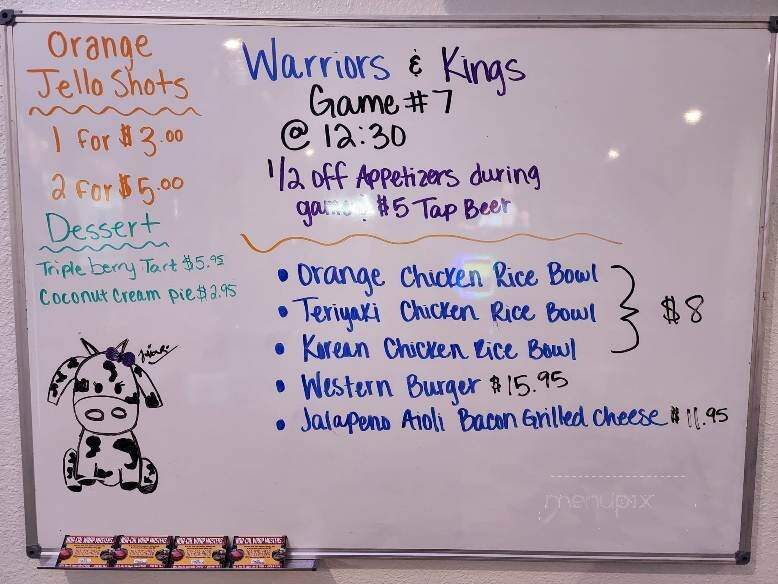 Orange
Jello Shots
1 for $3.00
2 for $5.00
Dessert
Triple berry Tart $5.95
Coconut Cream pie $2.95
Warriors & Kings
Game #7
@ 12:30
1/2 off Appetizers during
game $5 Tap Beer
• Orange Chicken Rice Bowl
• Teriyaki Chicken Rice Bowl
• Korean Chicken Rice Bowl
$8
• Western Burger $15.95
• Jalapeno Aioli Bacon Grilled Cheese $11.95
menupix